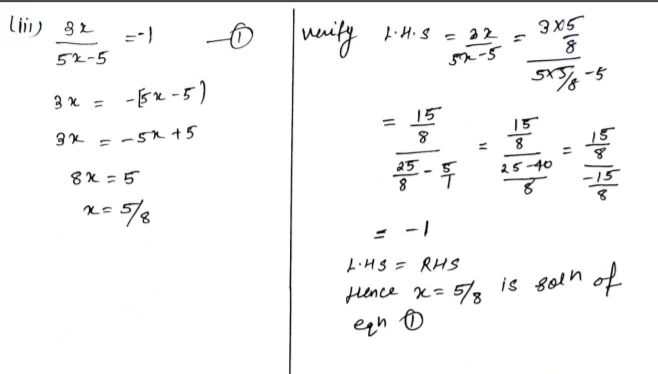 (iii) 3x/(5x-5) = -1 — ①
3x = -[5x-5)
3x = -5x+5
8x = 5
x = 5/8
verify L.H.S = 3x/(5x-5) = (3×5/8)/(5×5/8 -5)
= (15/8)/(25/8 - 5/1) = (15/8)/((25-40)/8) = (15/8)/(-15/8)
= -1
L.H.S = RHS
Hence x = 5/8 is soln of
eqn ①